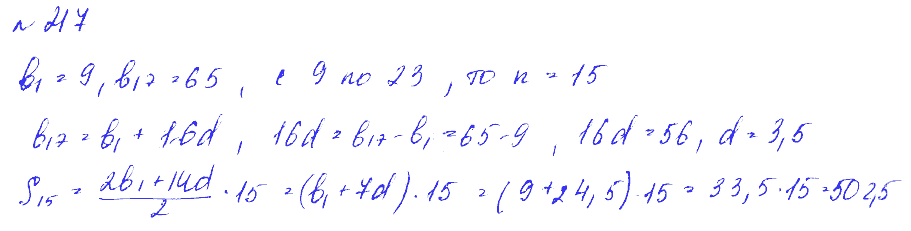 № 217
b₁ = 9, b₁₇ = 65, с 9 по 23, то n = 15
b₁₇ = b₁ + 16d, 16d = b₁₇ - b₁ = 65 - 9, 16d = 56, d = 3,5
S₁₅ = (2b₁ + 14d)/2 · 15 = (b₁ + 7d) · 15 = (9 + 24,5) · 15 = 33,5 · 15 = 502,5